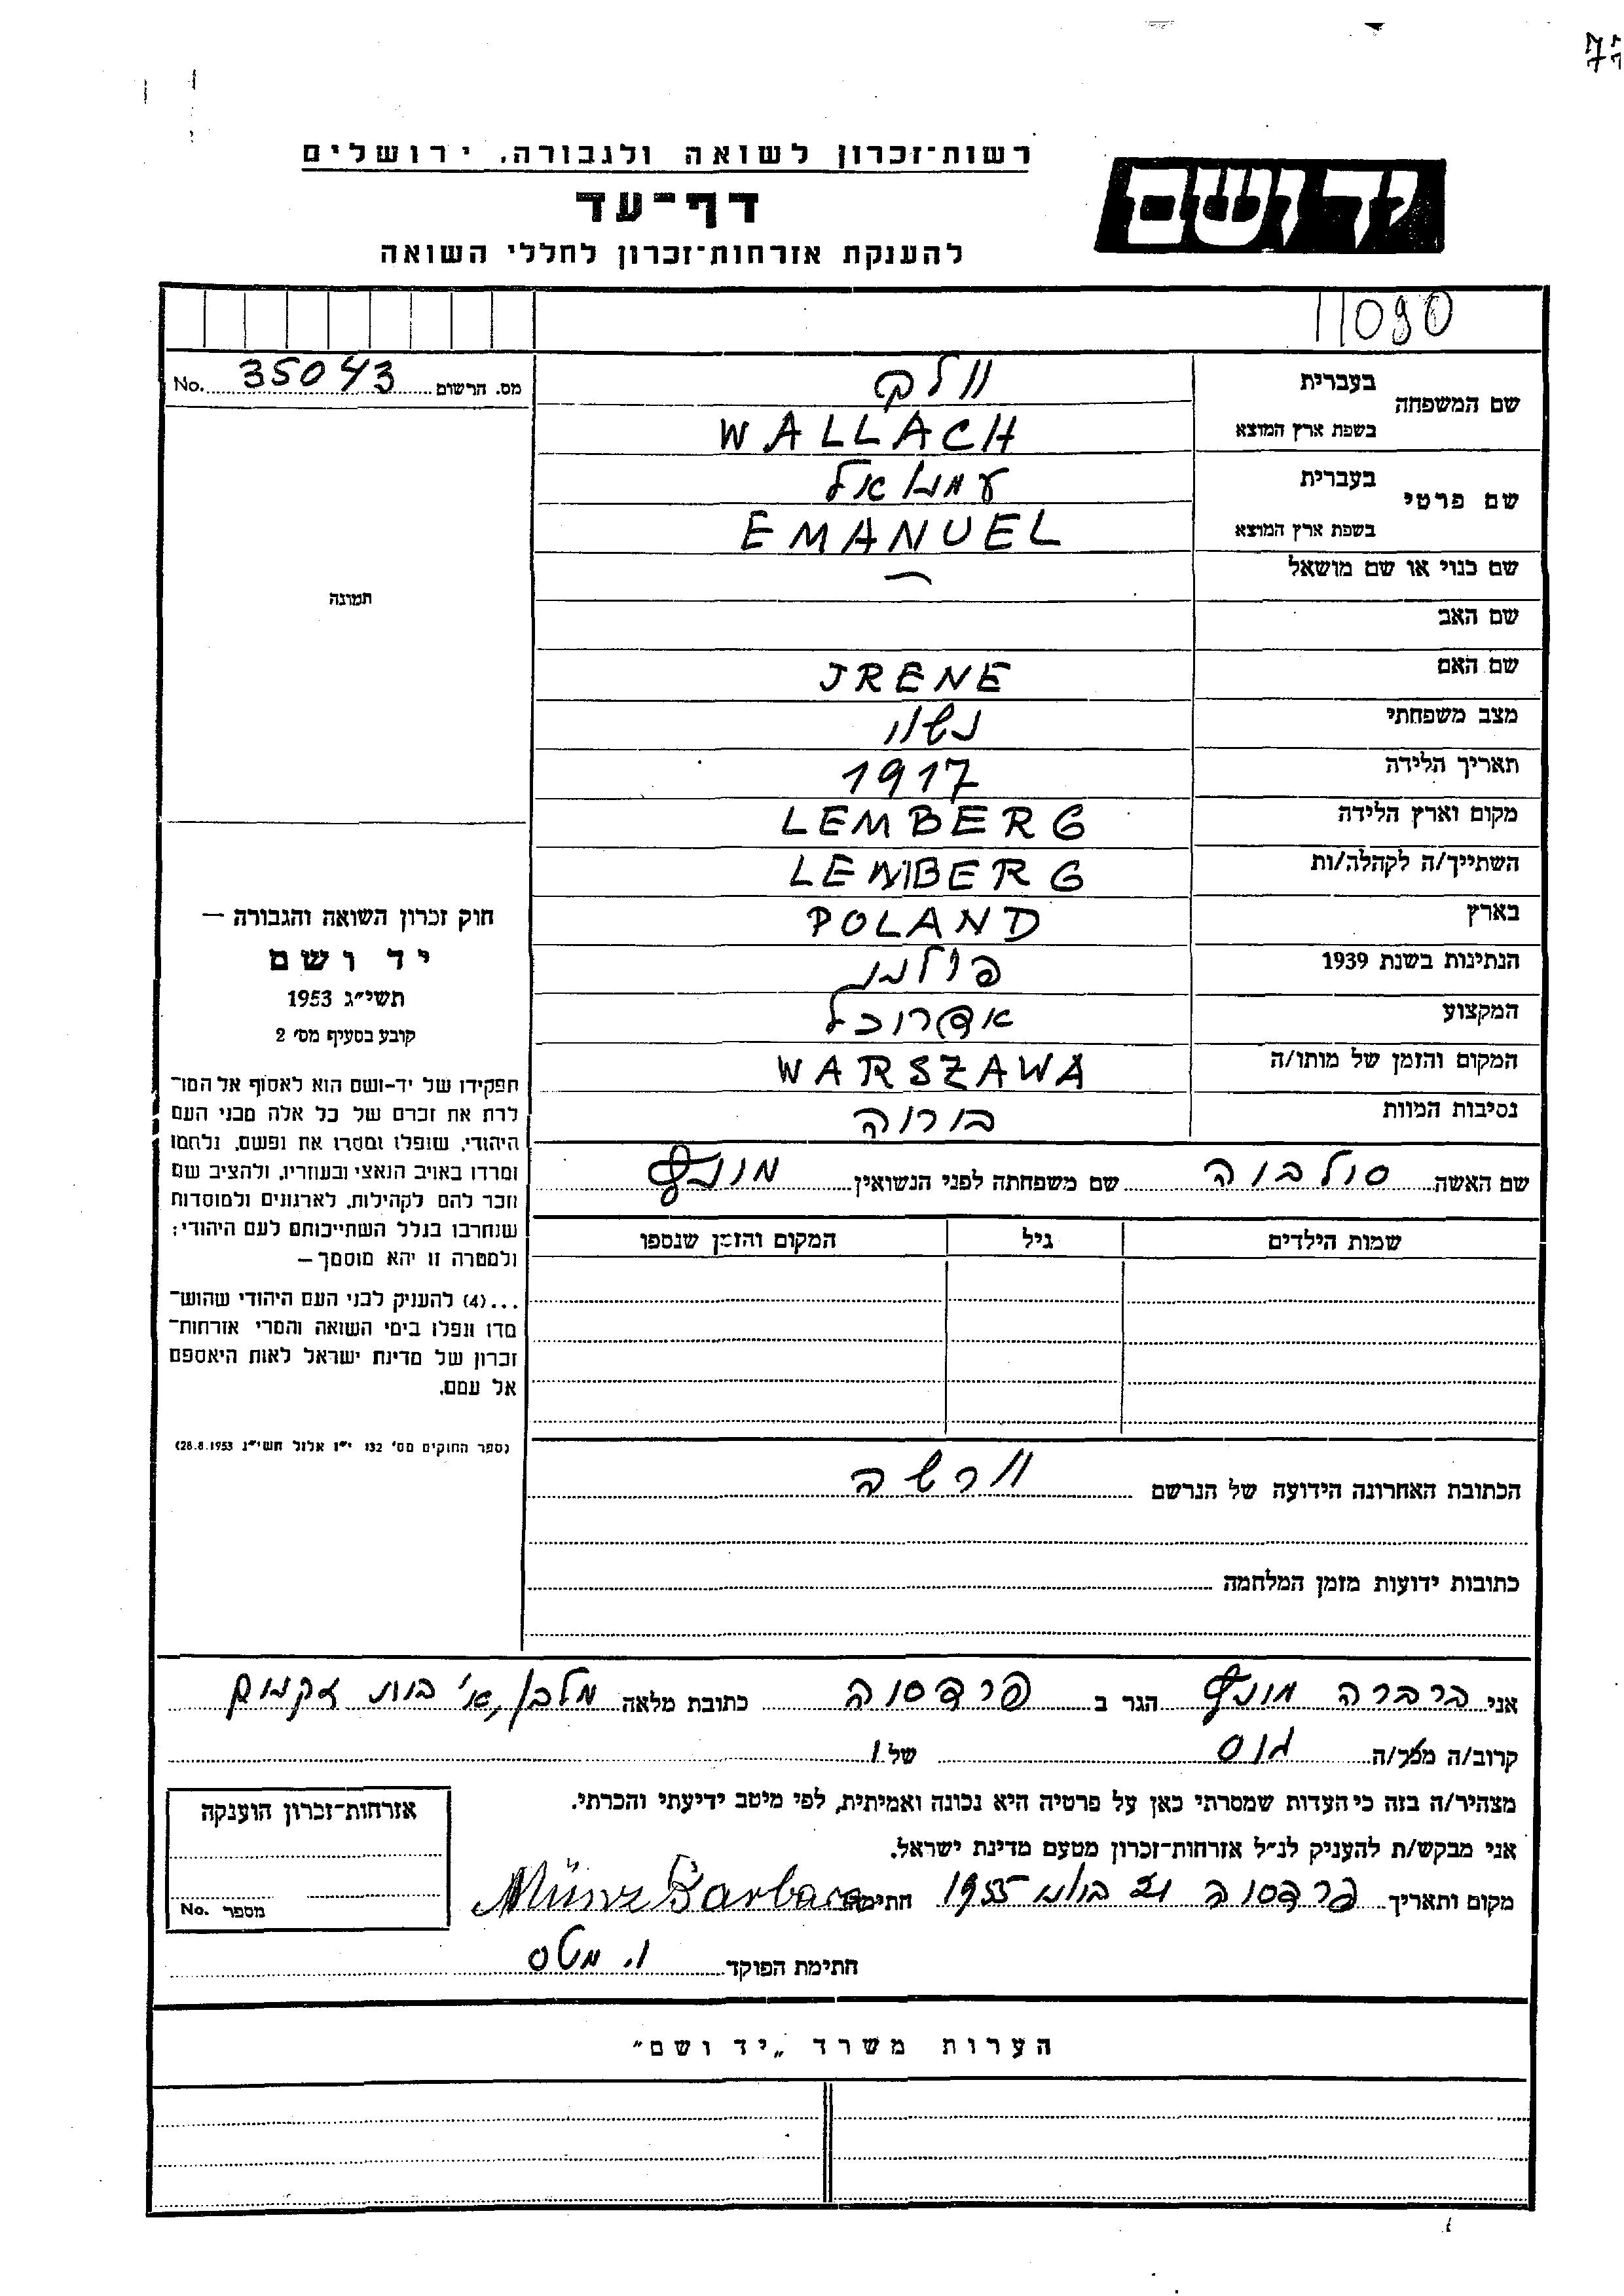 רשות־זכרון לשואה ולגבורה, ירושלים
יד ושם
דף־עד
להענקת אזרחות־זכרון לחללי השואה
11090
No. 35043 מס. הרשום
שם המשפחה בעברית וולק
בשפת ארץ המוצא WALLACH
שם פרטי בעברית עמנואל
בשפת ארץ המוצא EMANUEL
שם כנוי או שם מושאל —
תמונה
שם האב
שם האם JRENE
מצב משפחתי נשוי
תאריך הלידה 1917
מקום וארץ הלידה LEMBERG
השתייך/ה לקהלה/ות LEMBERG
בארץ POLAND
הנתינות בשנת 1939 פולני
המקצוע אדרוכל
המקום והזמן של מותו/ה WARSZAWA
נסיבות המוות
חוק זכרון השואה והגבורה —
יד ושם
תשי״ג 1953
קובע בסעיף מס׳ 2
תפקידו של יד-ושם הוא לאסוף אל המו־
לדת את זכרם של כל אלה מבני העם
היהודי, שנפלו ומסרו את נפשם, נלחמו
ומרדו באויב הנאצי ובעוזריו, ולהציב שם
וזכר להם לקהילות, לארגונים ולמוסדות
שנחרבו בגלל השתייכותם לעם היהודי;
ולמטרה זו יהא מוסמך —
...(4) להעניק לבני העם היהודי שהוש־
מדו ונפלו בימי השואה והמרי אזרחות־
זכרון של מדינת ישראל לאות היאספם
אל עמם.
(ספר החוקים מס׳ 132 י״ז אלול תשי״ג 28.8.1953)
שם האשה שם משפחתה לפני הנשואין
שמות הילדים גיל המקום והזמן שנספו
הכתובת האחרונה הידועה של הנרשם וורשה
כתובות ידועות מזמן המלחמה
אני ברברה הגר ב פרדסיה כתובת מלאה מלבן, א׳ בית זקנים
קרוב/ה מצל/ה גיס של 1
מצהיר/ה בזה כי העדות שמסרתי כאן על פרטיה היא נכונה ואמיתית, לפי מיטב ידיעתי והכרתי.
אני מבקש/ת להעניק לנ״ל אזרחות־זכרון מטעם מדינת ישראל.
מקום ותאריך פרדסיה 21 1955 חתימה Barbara
חתימת הפוקד
אזרחות־זכרון הוענקה
No. מספר
הערות משרד „יד ושם״